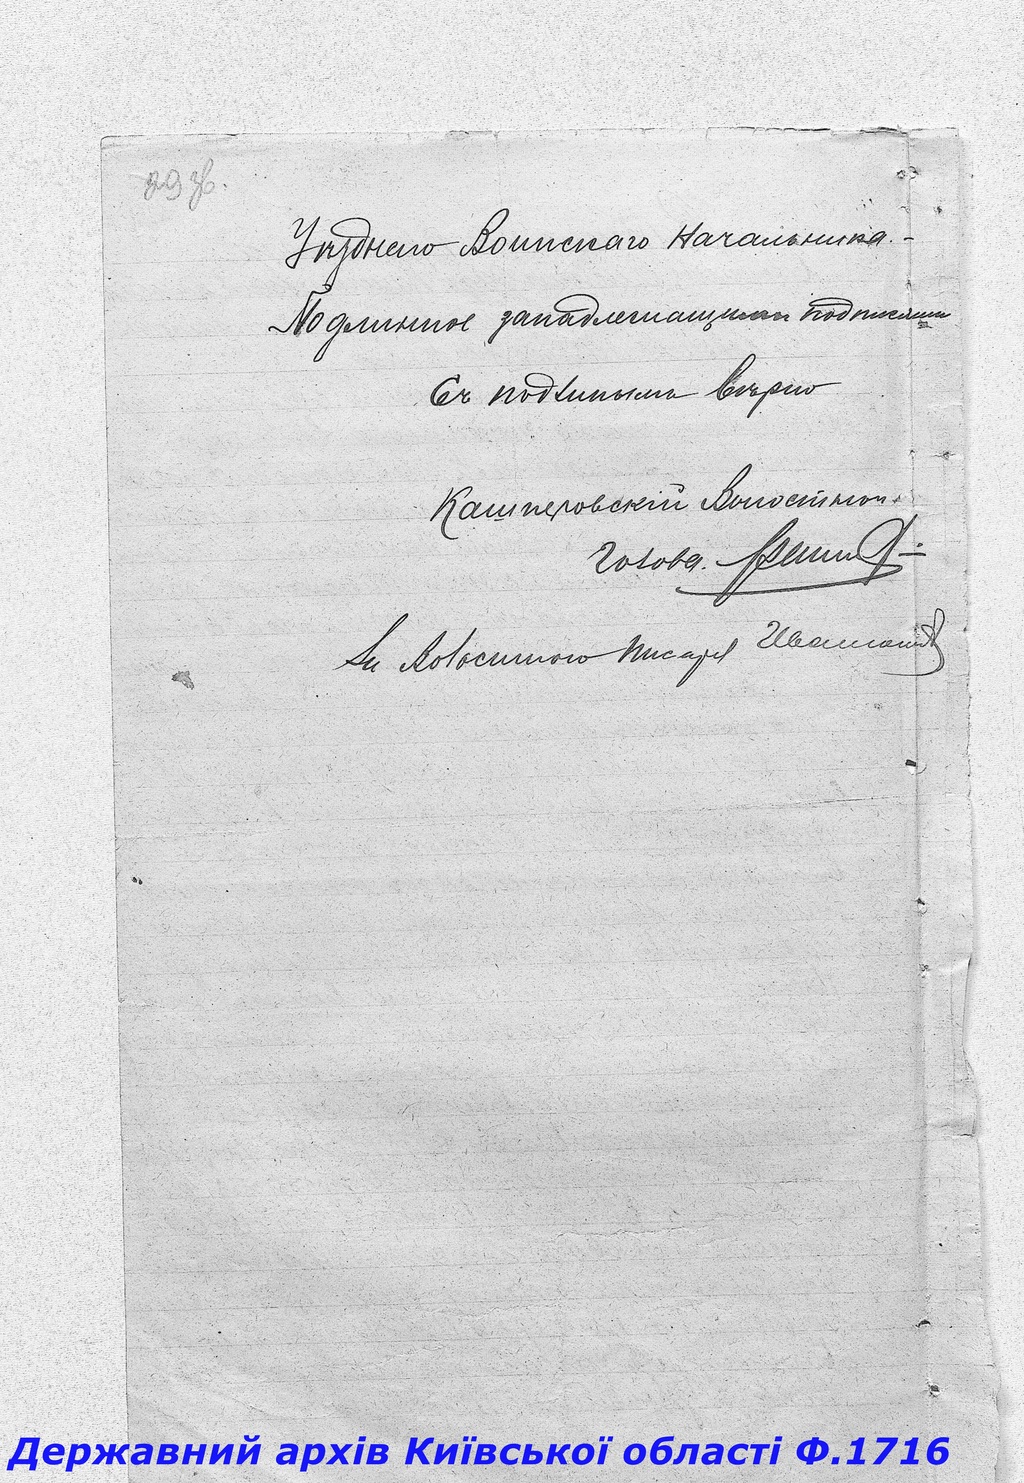 29 зв.
Уѣзднаго Воинскаго Начальника.-
Подлинное за надлежащими подписями
Съ подлинымъ вѣрно
Кашперовскій Волостной
Голова.
За Волостного Писаря
Державний архів Київської області Ф.1716